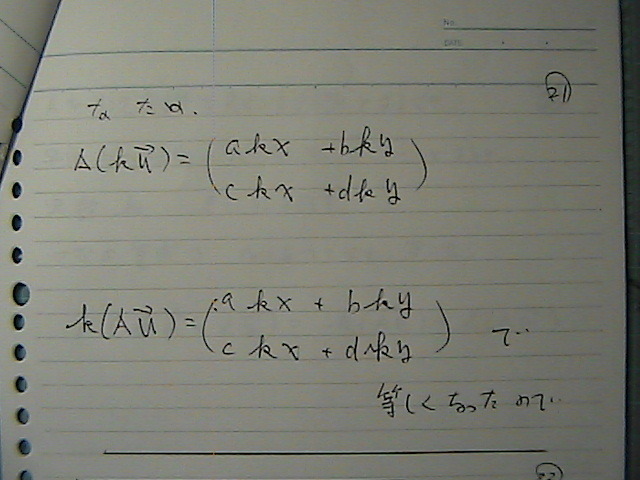 No.
DATE
㉑
A(k\vec{u}) = \begin{pmatrix} akx + bky \\ ckx + dky \end{pmatrix}
k(A\vec{u}) = \begin{pmatrix} akx + bky \\ ckx + dky \end{pmatrix} で
等しくなったので
㉒